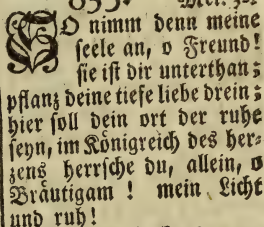 So nimm denn meine
seele an, o Freund!
sie ist dir unterthan;
pflanz deine tiefe liebe drein;
hier soll dein ort der ruhe
seyn, im Königreich des her-
zens herrsche du, allein, o
Bräutigam! mein Licht
und ruh!